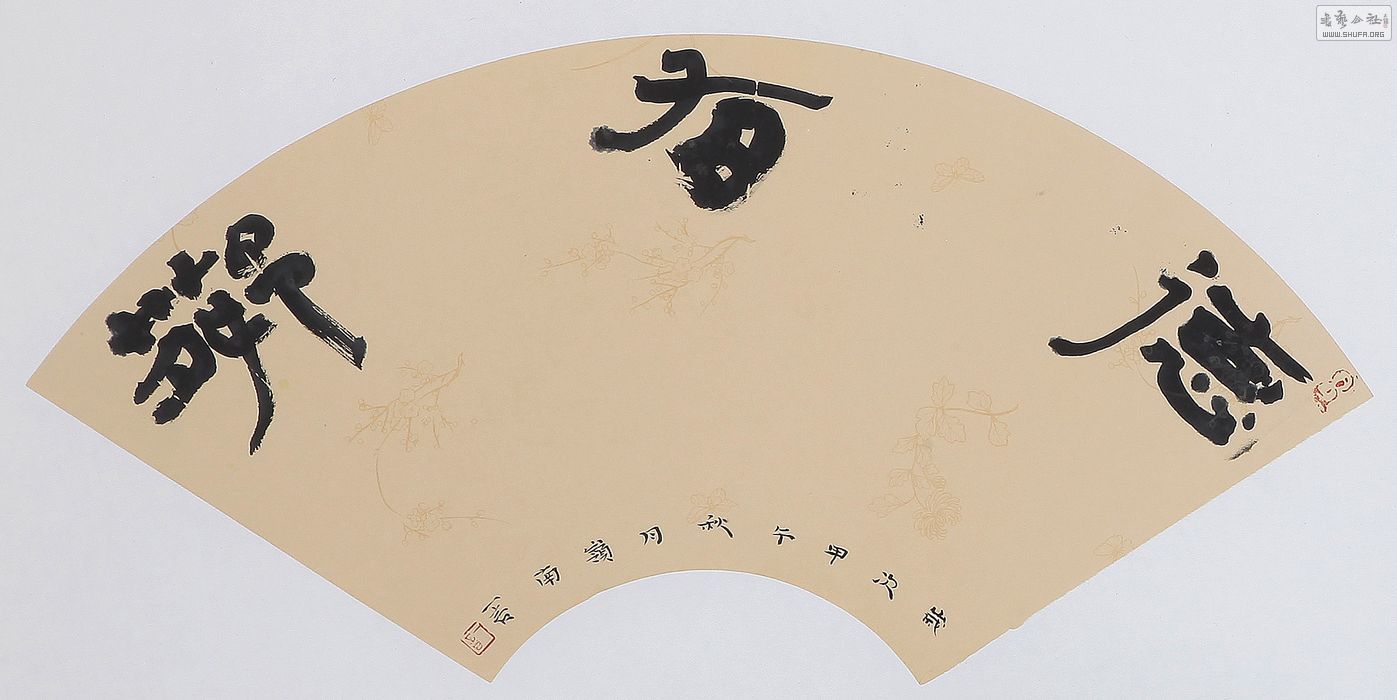 德有鄰
歲次甲午秋月嶺南一言
書藝公社
WWW.SHUFA.ORG